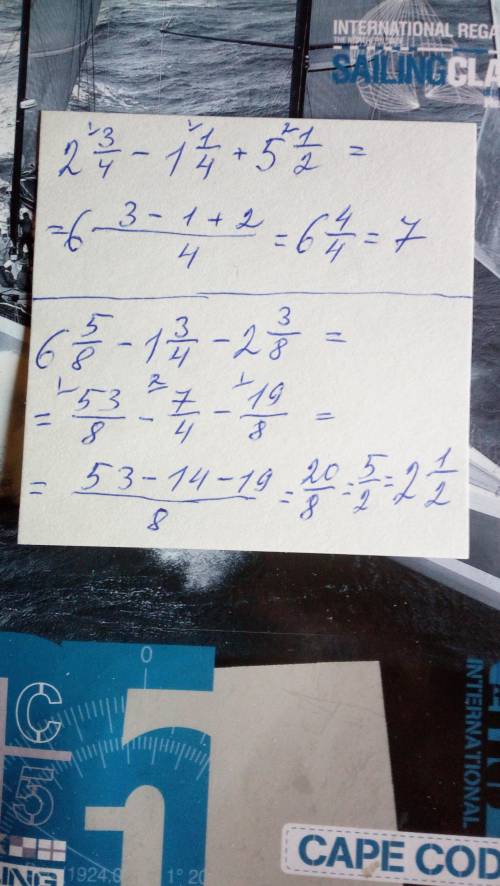 INTERNATIONAL REGA
SAILING CLA
2 3/4 - 1 1/4 + 5 1/2 =
= 6 (3 - 1 + 2)/4 = 6 4/4 = 7
6 5/8 - 1 3/4 - 2 3/8 =
= 53/8 - 7/4 - 19/8 =
= (53 - 14 - 19)/8 = 20/8 = 5/2 = 2 1/2
C
5
0
1
INTERNATIONAL
LING
1924.0
1° 20
CAPE COD